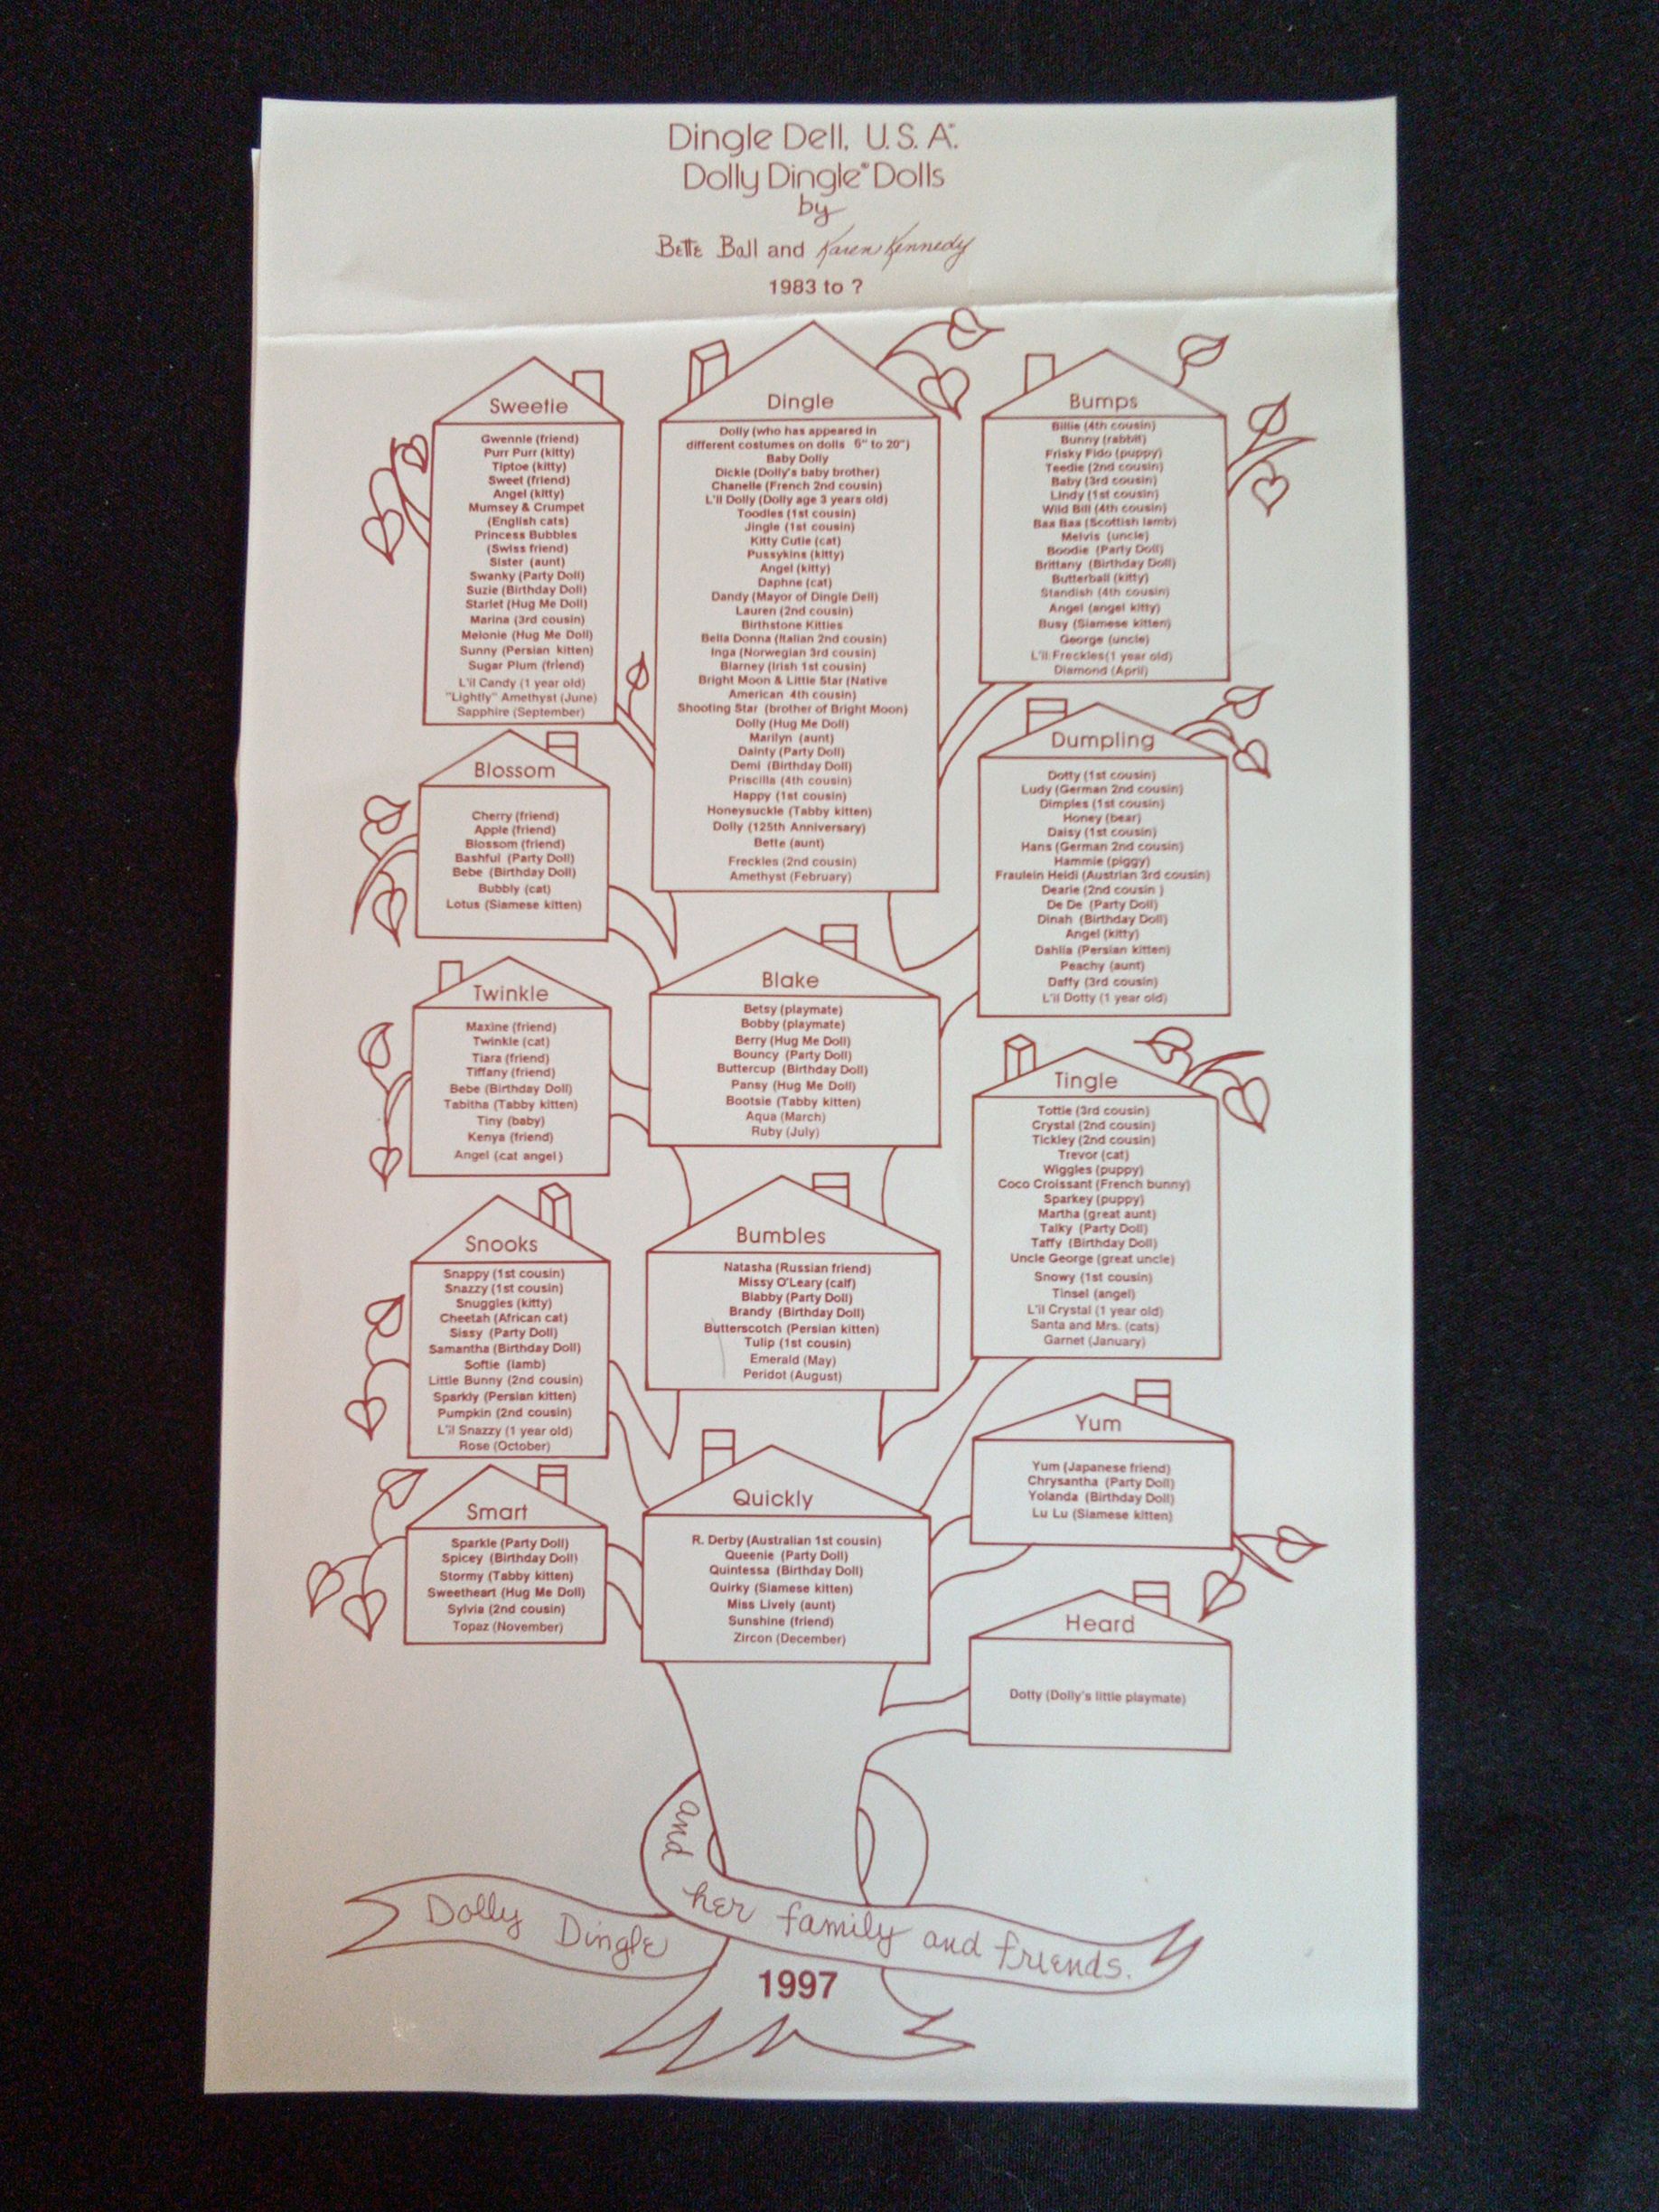 Dingle Dell, U.S.A.
Dolly Dingle® Dolls
by
Bette Ball and Karen Kennedy
1983 to ?
Sweetie
Gwennie (friend)
Purr Purr (kitty)
Tiptoe (kitty)
Sweet (friend)
Angel (kitty)
Mumsey & Crumpet
(English cats)
Princess Bubbles
(Swiss friend)
Sister (aunt)
Swanky (Party Doll)
Suzie (Birthday Doll)
Starlet (Hug Me Doll)
Marina (3rd cousin)
Melonie (Hug Me Doll)
Sunny (Persian kitten)
Sugar Plum (friend)
L'il Candy (1 year old)
"Lightly" Amethyst (June)
Sapphire (September)
Dingle
Dolly (who has appeared in
different costumes on dolls 6" to 20")
Baby Dolly
Dickie (Dolly's baby brother)
Chanelle (French 2nd cousin)
L'il Dolly (Dolly age 3 years old)
Toodles (1st cousin)
Jingle (1st cousin)
Kitty Cutie (cat)
Pussykins (kitty)
Angel (kitty)
Daphne (cat)
Dandy (Mayor of Dingle Dell)
Lauren (2nd cousin)
Birthstone Kitties
Bella Donna (Italian 2nd cousin)
Inga (Norwegian 3rd cousin)
Blarney (Irish 1st cousin)
Bright Moon & Little Star (Native
American 4th cousin)
Shooting Star (brother of Bright Moon)
Dolly (Hug Me Doll)
Marilyn (aunt)
Dainty (Party Doll)
Demi (Birthday Doll)
Priscilla (4th cousin)
Happy (1st cousin)
Honeysuckle (Tabby kitten)
Dolly (125th Anniversary)
Bette (aunt)
Freckles (2nd cousin)
Amethyst (February)
Bumps
Billie (4th cousin)
Bunny (rabbit)
Frisky Fido (puppy)
Teedie (2nd cousin)
Baby (3rd cousin)
Lindy (1st cousin)
Wild Bill (4th cousin)
Baa Baa (Scottish lamb)
Melvis (uncle)
Boodie (Party Doll)
Brittany (Birthday Doll)
Butterball (kitty)
Standish (4th cousin)
Angel (angel kitty)
Busy (Siamese kitten)
George (uncle)
L'il Freckles (1 year old)
Diamond (April)
Blossom
Cherry (friend)
Apple (friend)
Blossom (friend)
Bashful (Party Doll)
Bebe (Birthday Doll)
Bubbly (cat)
Lotus (Siamese kitten)
Dumpling
Dotty (1st cousin)
Ludy (German 2nd cousin)
Dimples (1st cousin)
Honey (bear)
Daisy (1st cousin)
Hans (German 2nd cousin)
Hammie (piggy)
Fraulein Heidi (Austrian 3rd cousin)
Dearie (2nd cousin )
De De (Party Doll)
Dinah (Birthday Doll)
Angel (kitty)
Dahlia (Persian kitten)
Peachy (aunt)
Daffy (3rd cousin)
L'il Dotty (1 year old)
Twinkle
Maxine (friend)
Twinkle (cat)
Tiara (friend)
Tiffany (friend)
Bebe (Birthday Doll)
Tabitha (Tabby kitten)
Tiny (baby)
Kenya (friend)
Angel (cat angel)
Blake
Betsy (playmate)
Bobby (playmate)
Berry (Hug Me Doll)
Bouncy (Party Doll)
Buttercup (Birthday Doll)
Pansy (Hug Me Doll)
Bootsie (Tabby kitten)
Aqua (March)
Ruby (July)
Tingle
Tottie (3rd cousin)
Crystal (2nd cousin)
Tickley (2nd cousin)
Trevor (cat)
Wiggles (puppy)
Coco Croissant (French bunny)
Sparkey (puppy)
Martha (great aunt)
Talky (Party Doll)
Taffy (Birthday Doll)
Uncle George (great uncle)
Snowy (1st cousin)
Tinsel (angel)
L'il Crystal (1 year old)
Santa and Mrs. (cats)
Garnet (January)
Snooks
Snappy (1st cousin)
Snazzy (1st cousin)
Snuggles (kitty)
Cheetah (African cat)
Sissy (Party Doll)
Samantha (Birthday Doll)
Softie (lamb)
Little Bunny (2nd cousin)
Sparkly (Persian kitten)
Pumpkin (2nd cousin)
L'il Snazzy (1 year old)
Rose (October)
Bumbles
Natasha (Russian friend)
Missy O'Leary (calf)
Blabby (Party Doll)
Brandy (Birthday Doll)
Butterscotch (Persian kitten)
Tulip (1st cousin)
Emerald (May)
Peridot (August)
Yum
Yum (Japanese friend)
Chrysantha (Party Doll)
Yolanda (Birthday Doll)
Lu Lu (Siamese kitten)
Smart
Sparkle (Party Doll)
Spicey (Birthday Doll)
Stormy (Tabby kitten)
Sweetheart (Hug Me Doll)
Sylvia (2nd cousin)
Topaz (November)
Quickly
R. Derby (Australian 1st cousin)
Queenie (Party Doll)
Quintessa (Birthday Doll)
Quirky (Siamese kitten)
Miss Lively (aunt)
Sunshine (friend)
Zircon (December)
Heard
Dotty (Dolly's little playmate)
Dolly Dingle and her family and friends.
1997